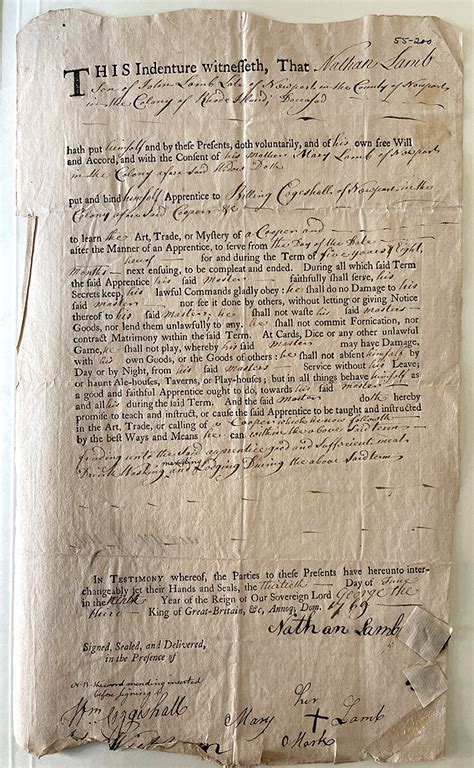 55-200
THIS Indenture witnesseth, That Nathan Lamb
Son of John Lamb Late of Newport in the County of Newport
in the Colony of Rhode Island Deceased
hath put himself and by these Presents, doth voluntarily, and of his own free Will
and Accord, and with the Consent of his mother Mary Lamb of Newport
in the Colony afore Said Widow Doth
put and bind himself Apprentice to Billing Cogeshall of Newport in the
Colony afore Said Cooper &c
to learn the Art, Trade, or Mystery of a Cooper and
after the Manner of an Apprentice, to serve from the Day of the Date
hereof for and during the Term of five years & Eight
Months next ensuing, to be compleat and ended. During all which said Term
the said Apprentice his said Master faithfully shall serve, his
Secrets keep, his lawful Commands gladly obey: he shall do no Damage to his
said master nor see it done by others, without letting or giving Notice
thereof to his said master, he shall not waste his said masters
Goods, nor lend them unlawfully to any. he shall not commit Fornication, nor
contract Matrimony within the said Term. At Cards, Dice or any other unlawful
Game, he shall not play, whereby his said master may have Damage,
with his own Goods, or the Goods of others: he shall not absent himself by
Day or by Night, from his said masters Service without his Leave;
or haunt Ale-houses, Taverns, or Play-houses; but in all things behave himself as
a good and faithful Apprentice ought to do, towards his said master
and all his during the said Term. And the said master doth hereby
promise to teach and instruct, or cause the said Apprentice to be taught and instructed
in the Art, Trade, or calling of a Cooper which he now followeth
by the best Ways and Means he can within the above Said term
finding unto the Said apprentice good and Sufficient meat
Drink Washing mending and Lodging During the above Said term
IN TESTIMONY whereof, the Parties to these Presents have hereunto inter-
changeably set their Hands and Seals, the thirtieth Day of June
in the Ninth Year of the Reign of Our Sovereign Lord George the
third King of Great-Britain, &c, Annoq; Dom. 1769
Nathan Lamb
Signed, Sealed, and Delivered,
in the Presence of
N.B. the word mending inserted
before signing
Wm Coggeshall
her
Mary + Lamb
Mark